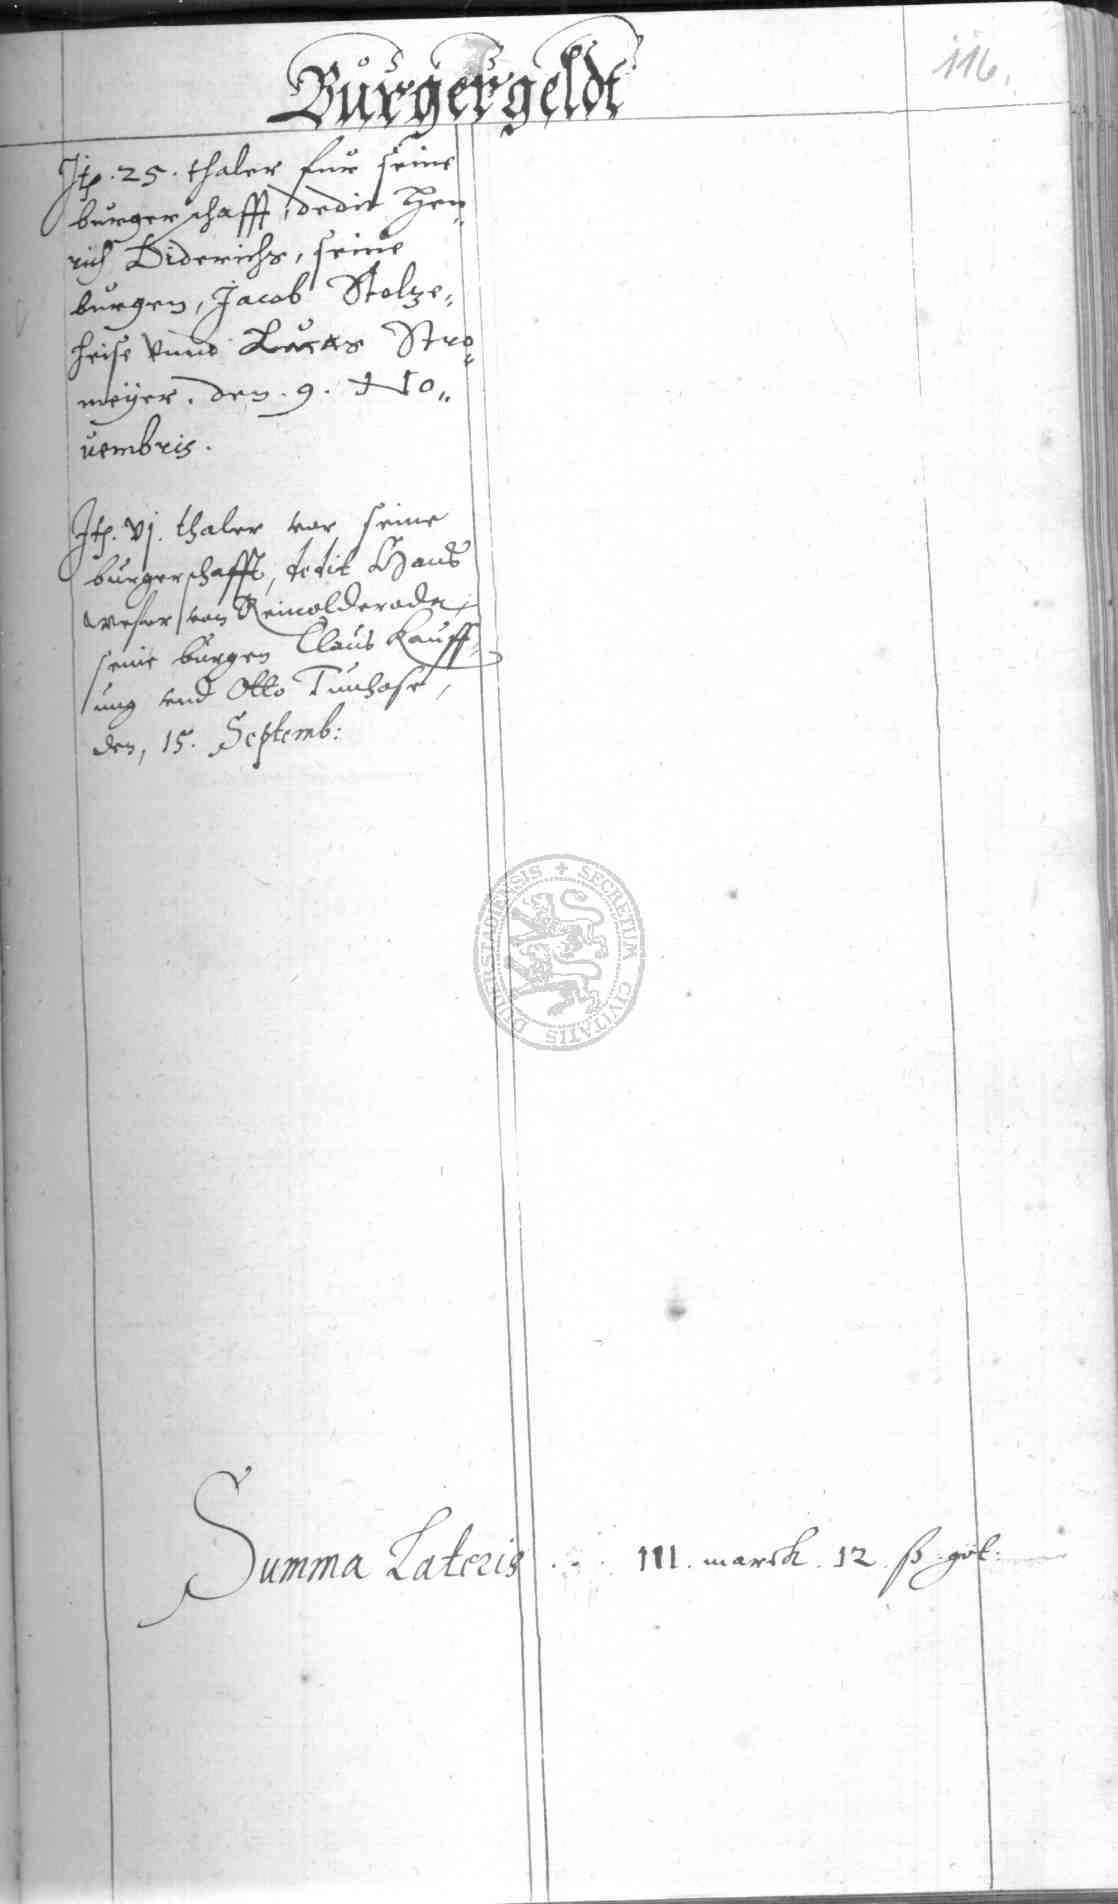 116.
Burgergeldt
Itp. 25. thaler fur seine
burgerschafft, dedit Hen„
rich Diderichs, seine
burgen, Jacob Stolze„
heise vnnd Lucas Stro„
meÿer. den. 9. No„
uembris.
Itp. vj. thaler vor seine
burgerschafft, dedit Hans
von Reinolderode,
seine burgen Claus Kauff„
ung vnd Otto Tunhose,
den, 15. Septemb:
SECRETUM CIVITATIS DUDERSTADIENSIS
Summa Lateris . . . 111. marck. 12. ß. got.